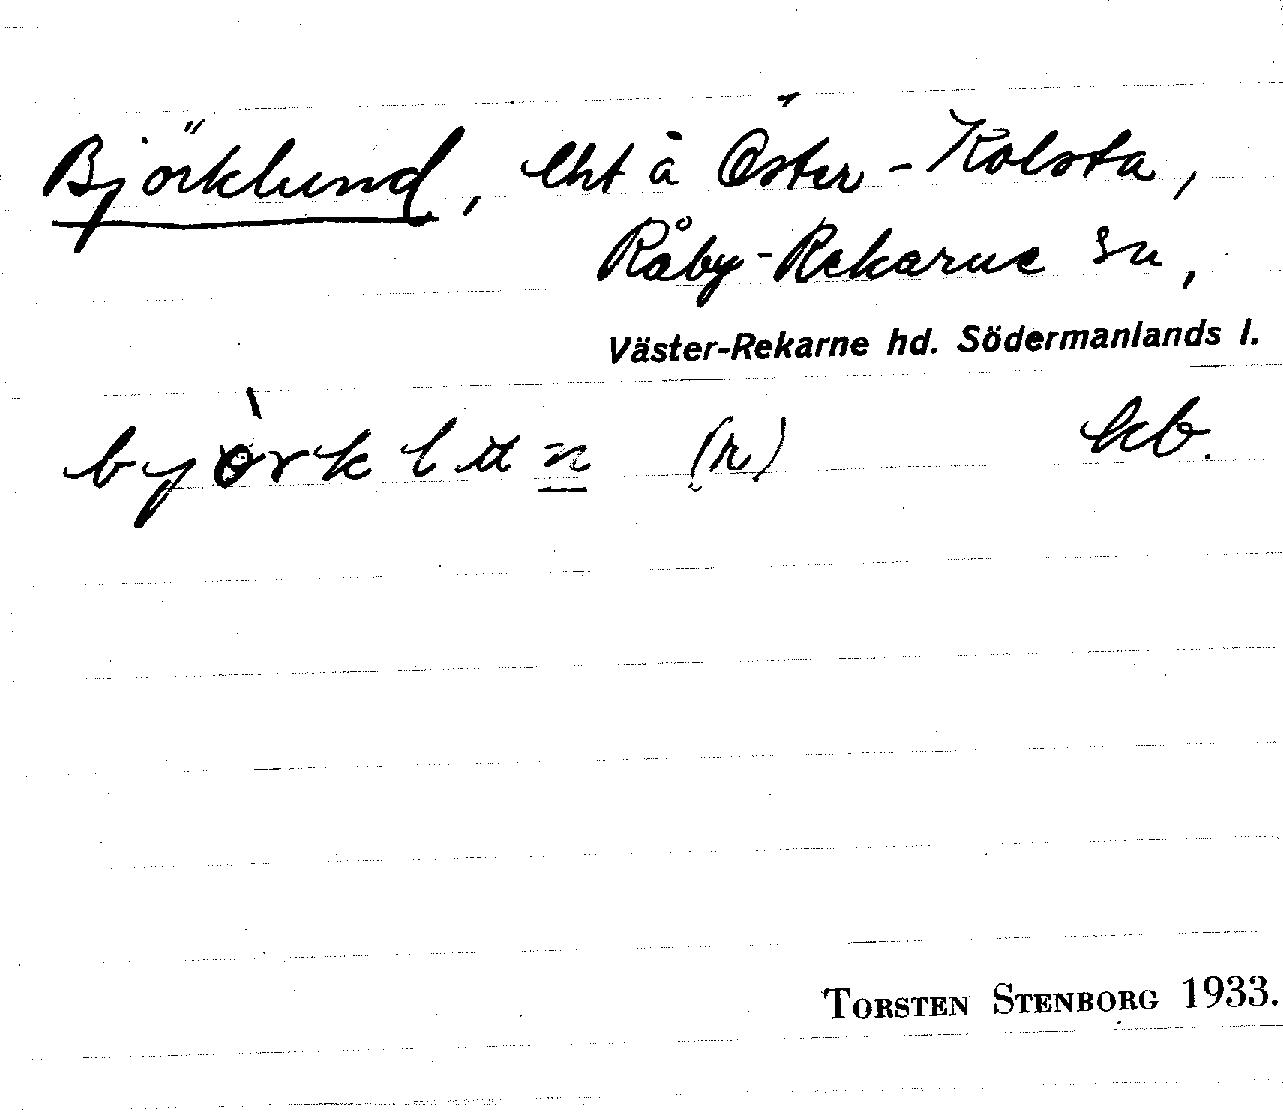 Björklund, lht å Öster-Kolsta,
Råby-Rekarne sn,
Väster-Rekarne hd. Södermanlands l.
byòrklun (n) kb.
TORSTEN STENBORG 1933.